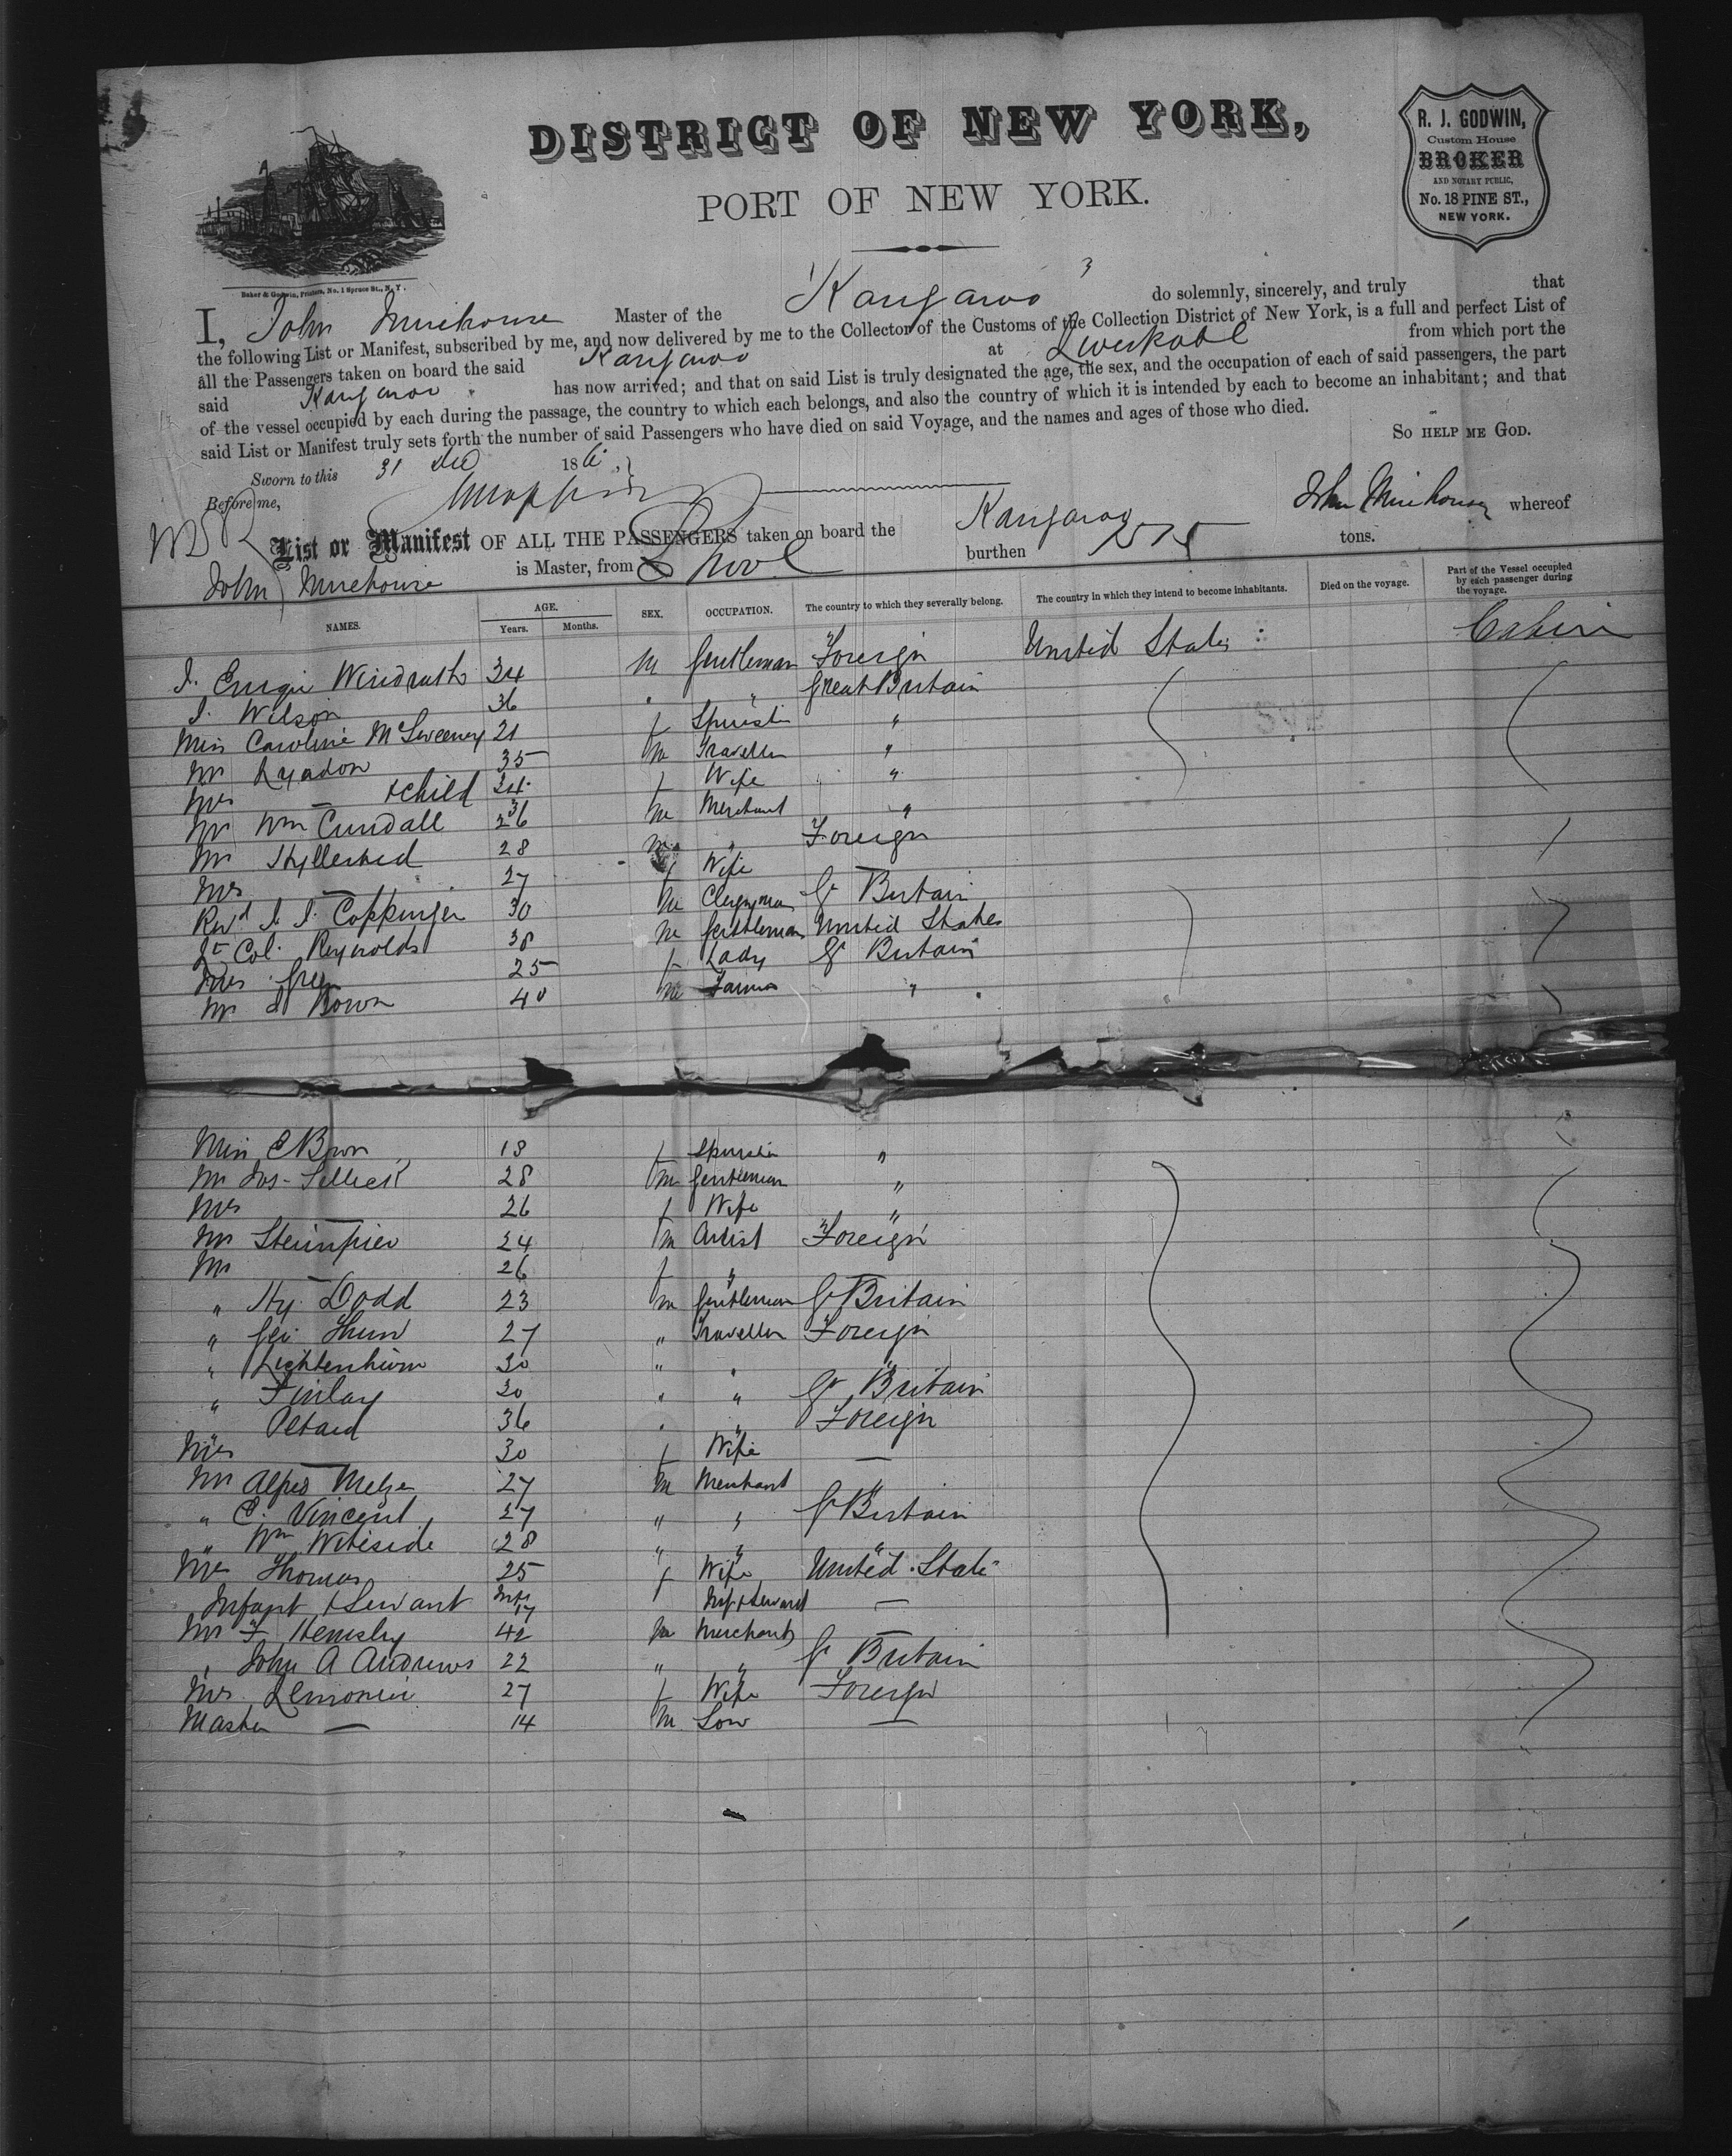 DISTRICT OF NEW YORK,
PORT OF NEW YORK.
R. J. GODWIN,
Custom House
BROKER
AND NOTARY PUBLIC,
No. 18 PINE ST.,
NEW YORK.
Baker & Godwin, Printers, No. 1 Spruce St., N. Y.
I, John Mirehouse Master of the Kangaroo do solemnly, sincerely, and truly that
the following List or Manifest, subscribed by me, and now delivered by me to the Collector of the Customs of the Collection District of New York, is a full and perfect List of
all the Passengers taken on board the said Kangaroo at Liverpool from which port the
said Kangaroo has now arrived; and that on said List is truly designated the age, the sex, and the occupation of each of said passengers, the part
of the vessel occupied by each during the passage, the country to which each belongs, and also the country of which it is intended by each to become an inhabitant; and that
said List or Manifest truly sets forth the number of said Passengers who have died on said Voyage, and the names and ages of those who died.
SO HELP ME GOD.
Sworn to this 31 Dec 186
Before me,
John Mirehouse
List or Manifest OF ALL THE PASSENGERS taken on board the Kangaroo whereof
John Mirehouse is Master, from L'pool burthen 1575 tons.
NAMES. AGE. Years. Months. SEX. OCCUPATION. The country to which they severally belong. The country in which they intend to become inhabitants. Died on the voyage. Part of the Vessel occupied by each passenger during the voyage.
34 M Gentleman Foreign United States Cabin
J. Wilson 36 " " Great Britain
Miss Caroline McSweeney 21 f Spinster "
Mr Lyadon 35 M Traveller "
Mrs — & child 34 f Wife "
Mr Wm Cundall 36 M Merchant "
Mr Hyllested 28 M " Foreign
Mrs — 27 f Wife
Revd J. J. Coppinger 30 M Clergyman Gt Britain
Lt Col. Reynolds 38 M Gentleman United States
Mrs Green 25 f Lady Gt Britain
Mr Bown 40 M Farmer "
Miss C Bown 18 f Spinster "
Mr Jos. Sellick 28 M Gentleman "
Mrs — 26 f Wife "
Mr 24 M Artist Foreign
— 26 f "
" Hy. Dodd 23 M Gentleman Gt Britain
" Geo 27 " Traveller Foreign
" Lichtenheim 30 " " "
" Finlay 30 " " Gt Britain
" 36 " " Foreign
Mrs — 30 f Wife —
Mr Alfred 27 M Merchant "
" C. Vincent 27 " " Gt Britain
" Wm Witeside 28 " " "
Mrs Thomas 25 f Wife United States
Infant & Servant 17 Inf & Servant —
Mr F Hemsley 42 M Merchant —
" John A Andrews 22 " " Gt Britain
Mrs Lemonier 27 f Wife Foreign
Master — 14 M Son —